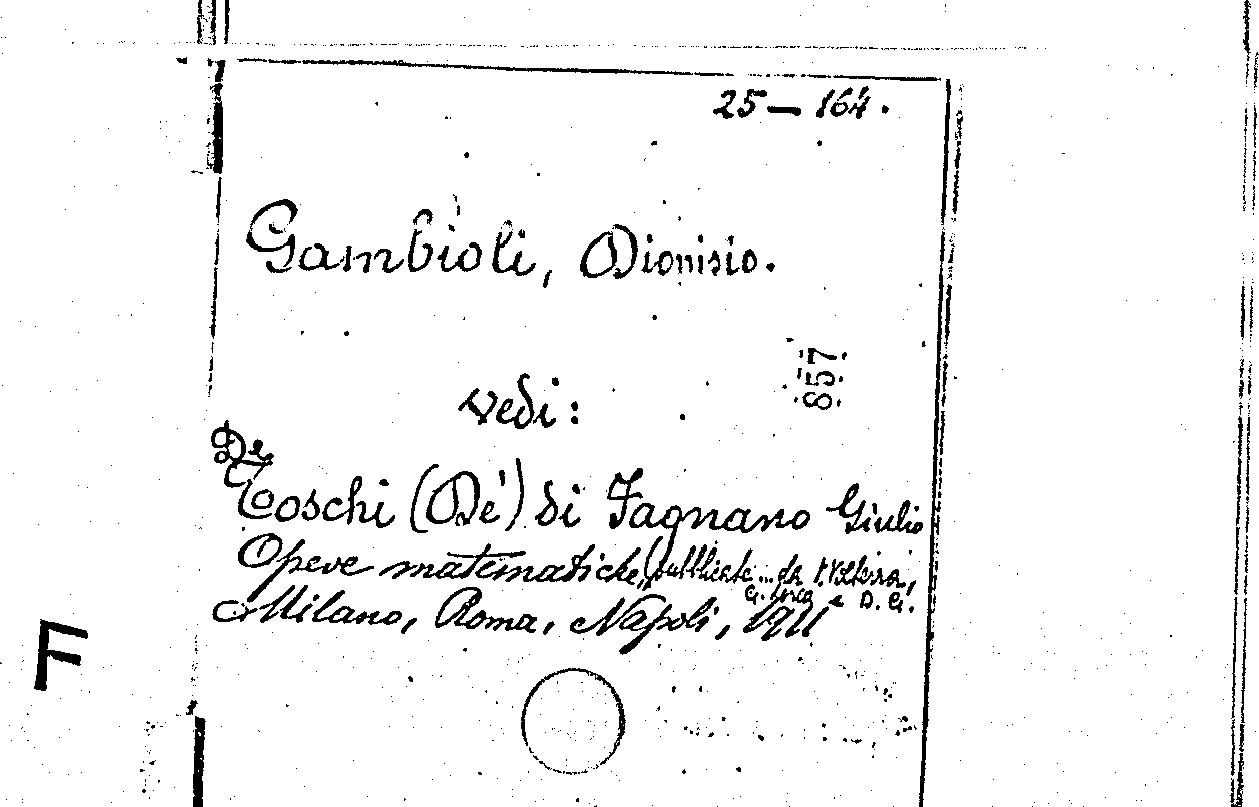 25 — 164.
Gambioli, Dionisio.
857
vedi:
De
Toschi (De') di Fagnano Giulio
Opere matematiche, (pubblicate... da V. Volterra,
G. Loria e D. G.
Milano, Roma, Napoli, 1911
F